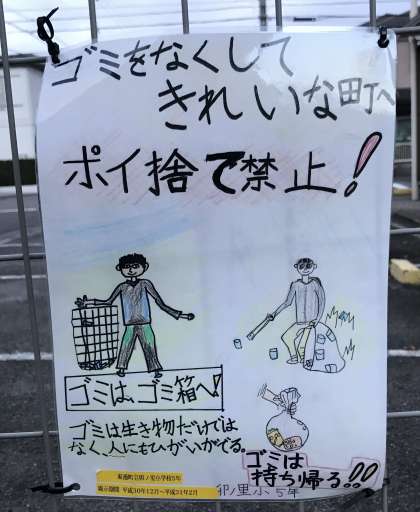 ゴミをなくして
きれいな町へ
ポイ捨て禁止!
ゴミは、ゴミ箱へ!
ゴミは生き物だけでは
なく、人にもひがいがでる。
ゴミは
持ち帰る!!
卯ノ里小5年
東浦町立卯ノ里小学校5年
掲示期間 平成30年12月~平成31年2月